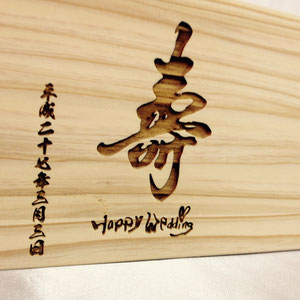 寿
Happy Wedding
平成二十七年三月三日